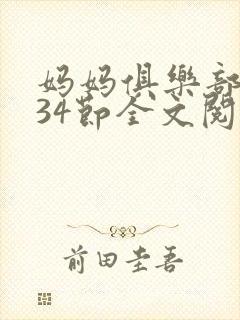 妈妈俱樂部
34節全文閱
前田圭吾